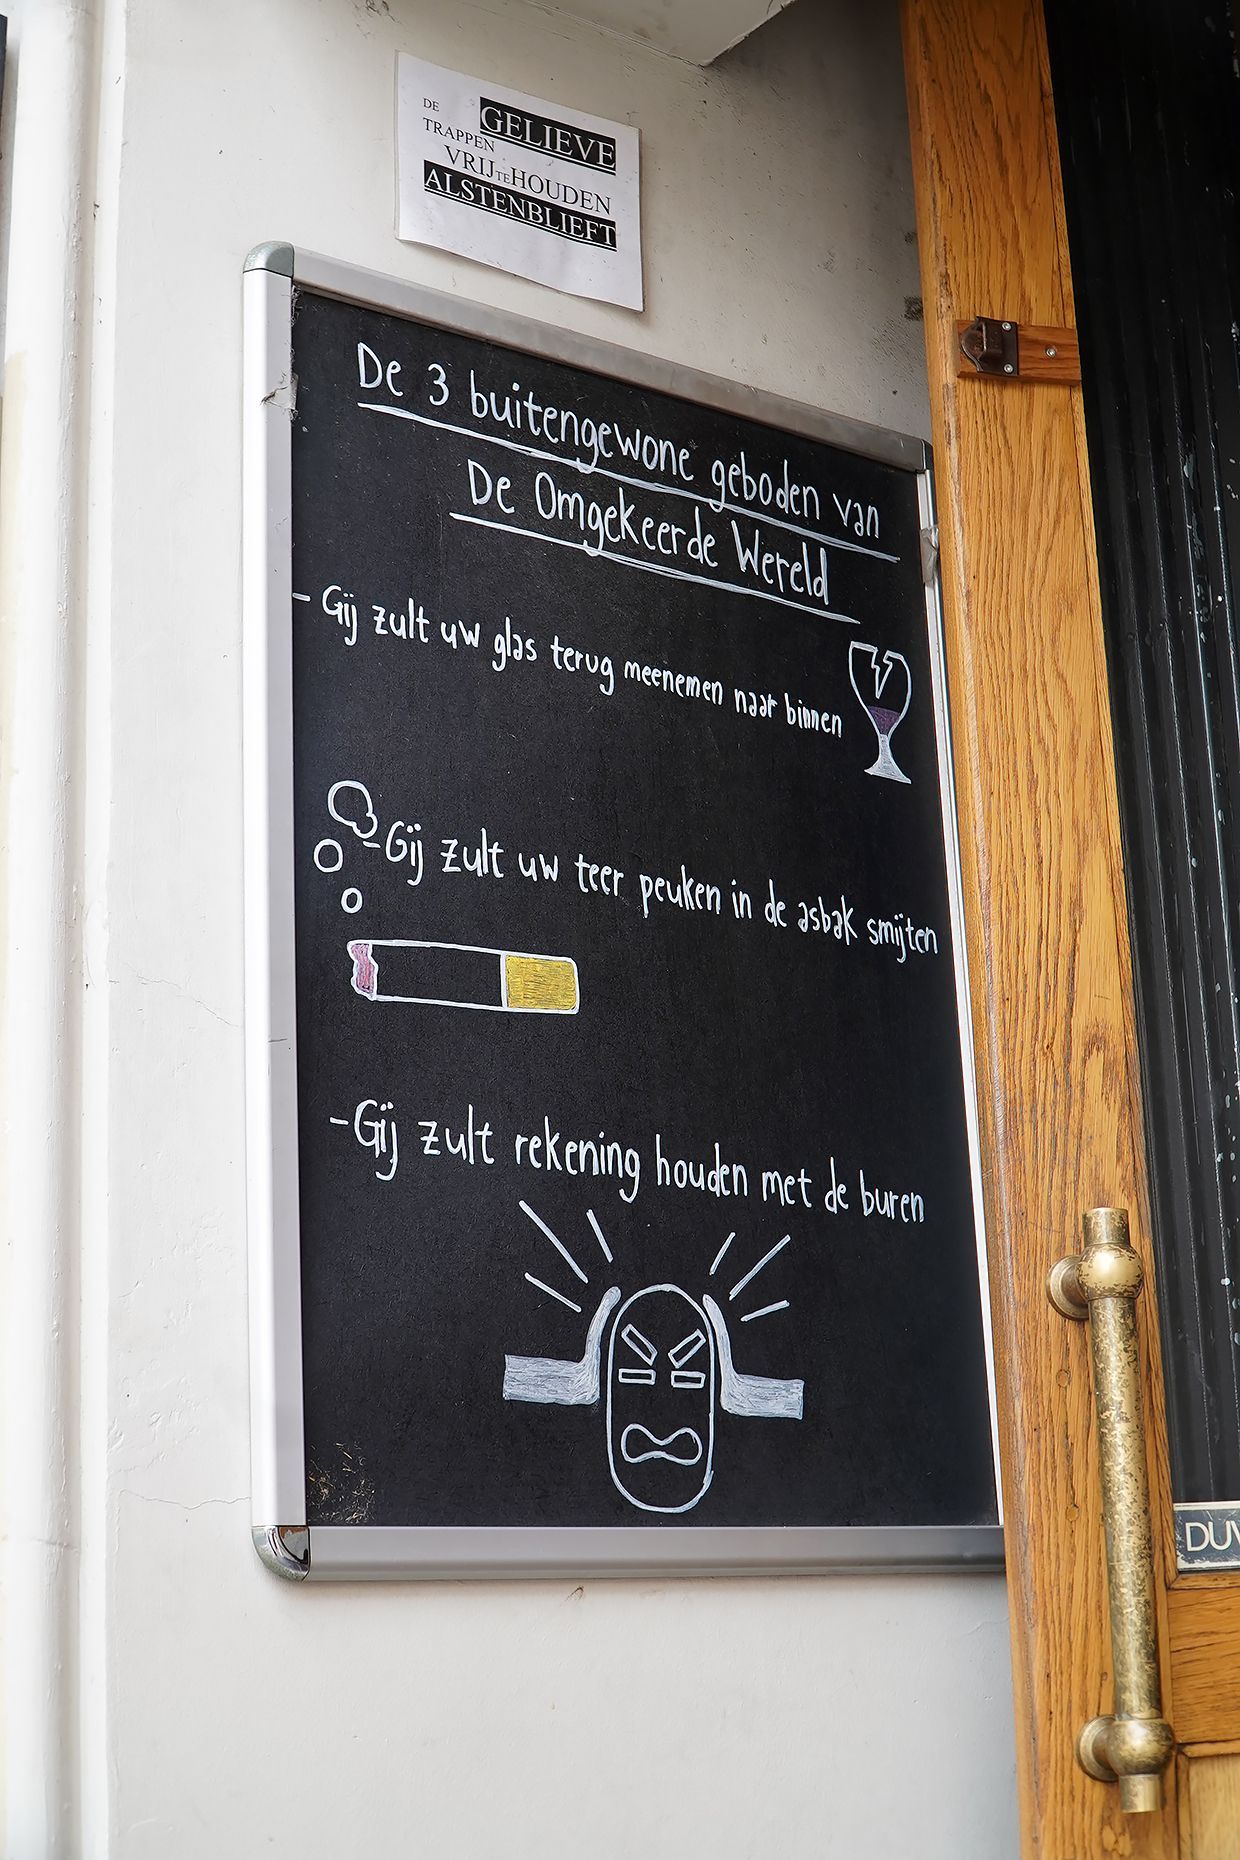 DE GELIEVE
TRAPPEN
VRIJ TE HOUDEN
ALSTENBLIEFT
De 3 buitengewone geboden van
De Omgekeerde Wereld
- Gij zult uw glas terug meenemen naar binnen
- Gij zult uw teer peuken in de asbak smijten
- Gij zult rekening houden met de buren